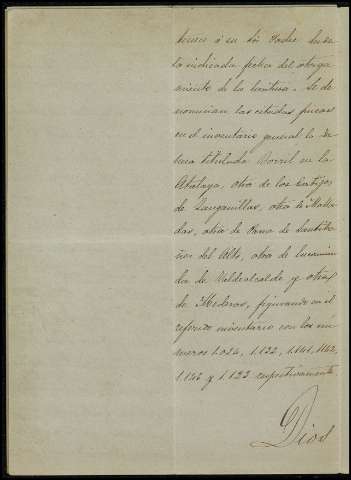 tenece á su dho Padre desde
la indicada fecha del otorga
miento de la escritura. Se de
nominan las citadas fincas
en el inventario general la
una titulada Corril en la
Atalaya, otra de los Cortijos
de Zanganillas, otra de
das, otra de Pozuo de Santiba
ñez del Alto, otra de encomien
da de Valdealcalde y otra
de Mederos, figurando en el
referido inventario con los nú
meros 1.024, 1.132, 1.141, 1142,
1.146 y 1.123 respectivamente
Dios